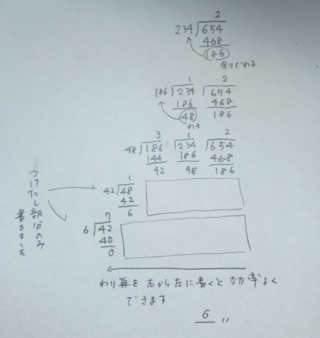 2
234)654
468
186
余りでわる
1 2
186)234)654
186 468
48 186
わる
3 1 2
48)186)234)654
144 186 468
42 48 186
1
42)48
42
6
7
6)42
40
0
つけたし部分のみ
書きました
わり算を右から左に書くと効率よく
できます
6 〃